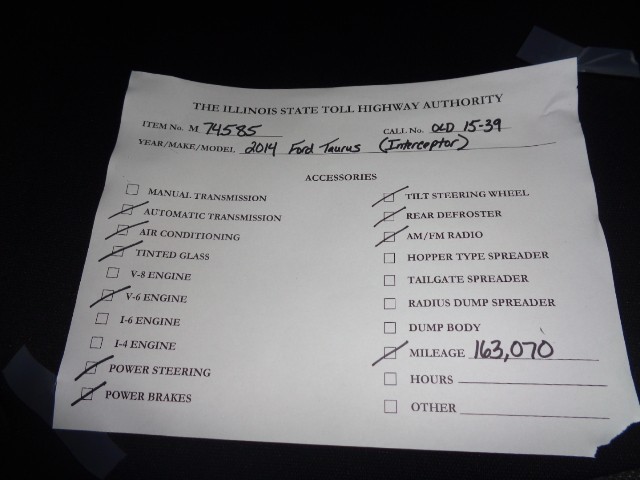 THE ILLINOIS STATE TOLL HIGHWAY AUTHORITY
ITEM No. M 74585 CALL No. OLD 15-39
YEAR/MAKE/MODEL 2014 Ford Taurus (Interceptor)
ACCESSORIES
MANUAL TRANSMISSION
AUTOMATIC TRANSMISSION
AIR CONDITIONING
TINTED GLASS
V-8 ENGINE
V-6 ENGINE
I-6 ENGINE
I-4 ENGINE
POWER STEERING
POWER BRAKES
TILT STEERING WHEEL
REAR DEFROSTER
AM/FM RADIO
HOPPER TYPE SPREADER
TAILGATE SPREADER
RADIUS DUMP SPREADER
DUMP BODY
MILEAGE 163,070
HOURS
OTHER